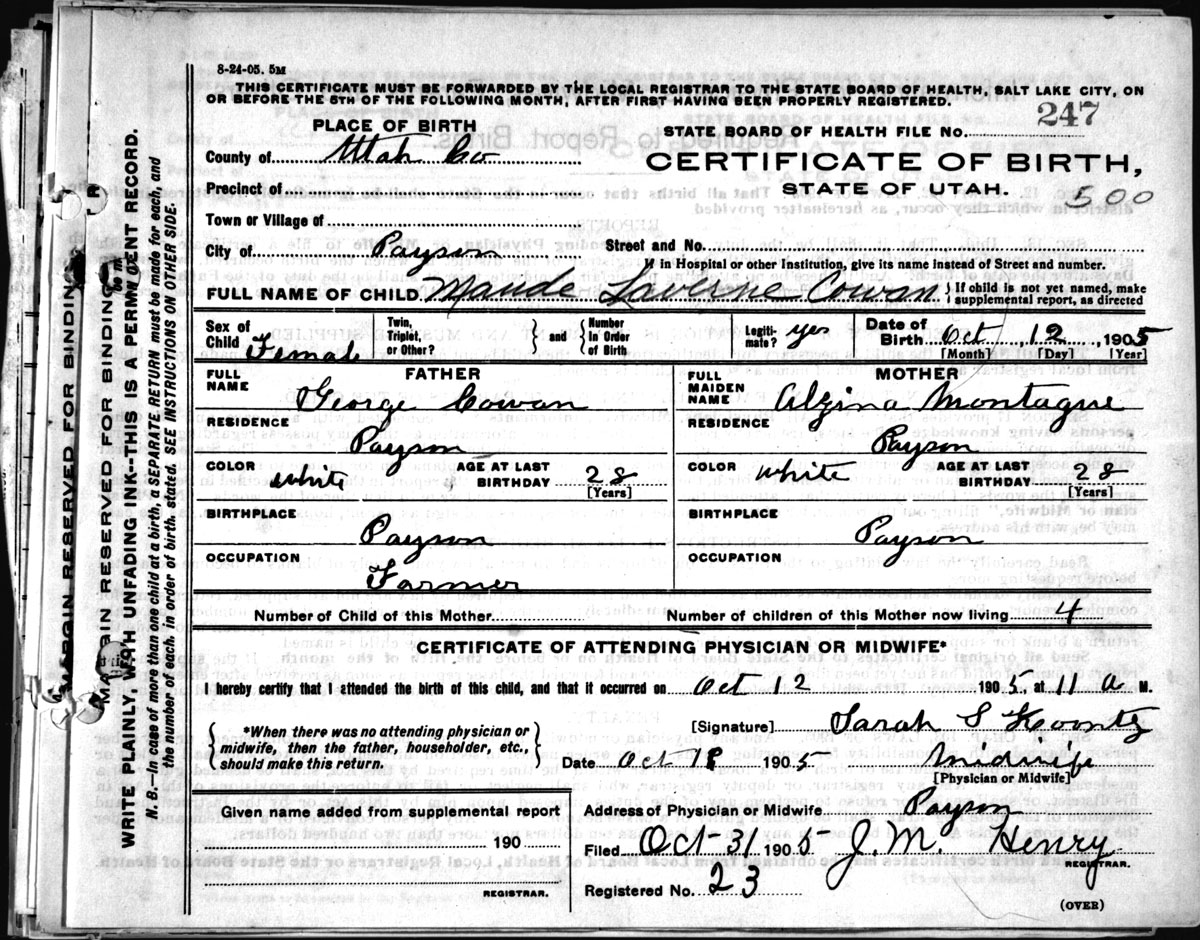 8-24-05. 5M
THIS CERTIFICATE MUST BE FORWARDED BY THE LOCAL REGISTRAR TO THE STATE BOARD OF HEALTH, SALT LAKE CITY, ON
OR BEFORE THE 5TH OF THE FOLLOWING MONTH, AFTER FIRST HAVING BEEN PROPERLY REGISTERED.
PLACE OF BIRTH
STATE BOARD OF HEALTH FILE No. 247
County of Utah Co
CERTIFICATE OF BIRTH,
Precinct of
STATE OF UTAH.
500
Town or Village of
City of Payson
Street and No.
If in Hospital or other Institution, give its name instead of Street and number.
FULL NAME OF CHILD Maude Laverne Cowan } If child is not yet named, make
supplemental report, as directed
Sex of
Child Female
Twin,
Triplet,
or Other?
} and {
Number
in Order
of Birth
Legiti-
mate? yes
Date of
Birth Oct 12, 1905
[Month] [Day] [Year]
FATHER
FULL
NAME George Cowan
RESIDENCE
Payson
COLOR white
AGE AT LAST
BIRTHDAY 28
[Years]
BIRTHPLACE
Payson
OCCUPATION
Farmer
MOTHER
FULL
MAIDEN
NAME Alzina Montague
RESIDENCE
Payson
COLOR white
AGE AT LAST
BIRTHDAY 28
[Years]
BIRTHPLACE
Payson
OCCUPATION
Number of Child of this Mother
Number of children of this Mother now living 4
CERTIFICATE OF ATTENDING PHYSICIAN OR MIDWIFE*
I hereby certify that I attended the birth of this child, and that it occurred on Oct 12 1905, at 11 a M.
{ *When there was no attending physician or
midwife, then the father, householder, etc.,
should make this return. }
[Signature] Sarah S Koontz
Date Oct 18 1905
Midwife
[Physician or Midwife]
Given name added from supplemental report
190
REGISTRAR.
Address of Physician or Midwife Payson
Filed Oct-31 1905 J. M. Henry
REGISTRAR.
Registered No. 23
(OVER)
MARGIN RESERVED FOR BINDING
MARGIN RESERVED FOR BINDING
WRITE PLAINLY, WITH UNFADING INK--THIS IS A PERMANENT RECORD.
N. B.--In case of more than one child at a birth, a SEPARATE RETURN must be made for each, and
the number of each, in order of birth, stated. SEE INSTRUCTIONS ON OTHER SIDE.